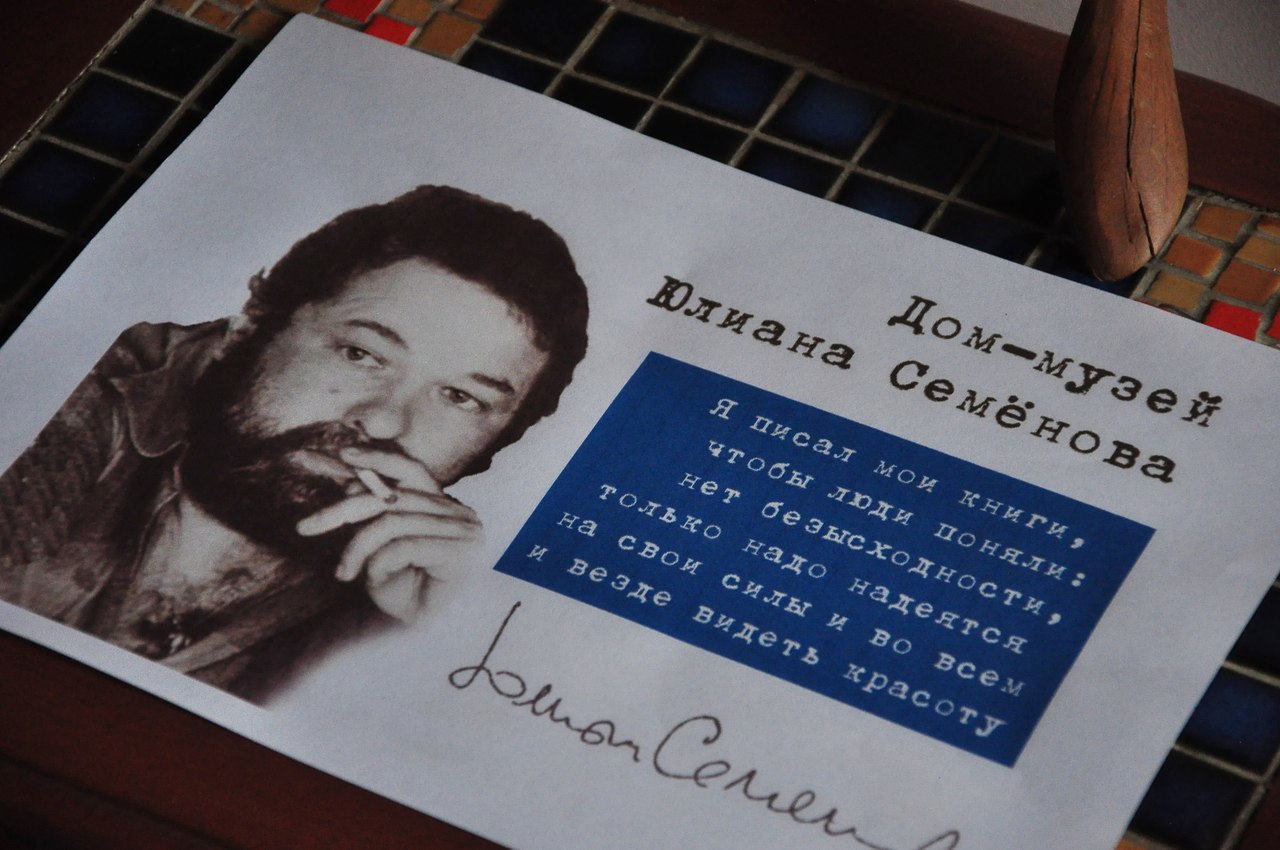 Дом-музей
Юлиана Семёнова
Я писал мои книги,
чтобы люди поняли:
нет безысходности,
только надо надеятся
на свои силы и во всем
и везде видеть красоту
Юлиан Семенов